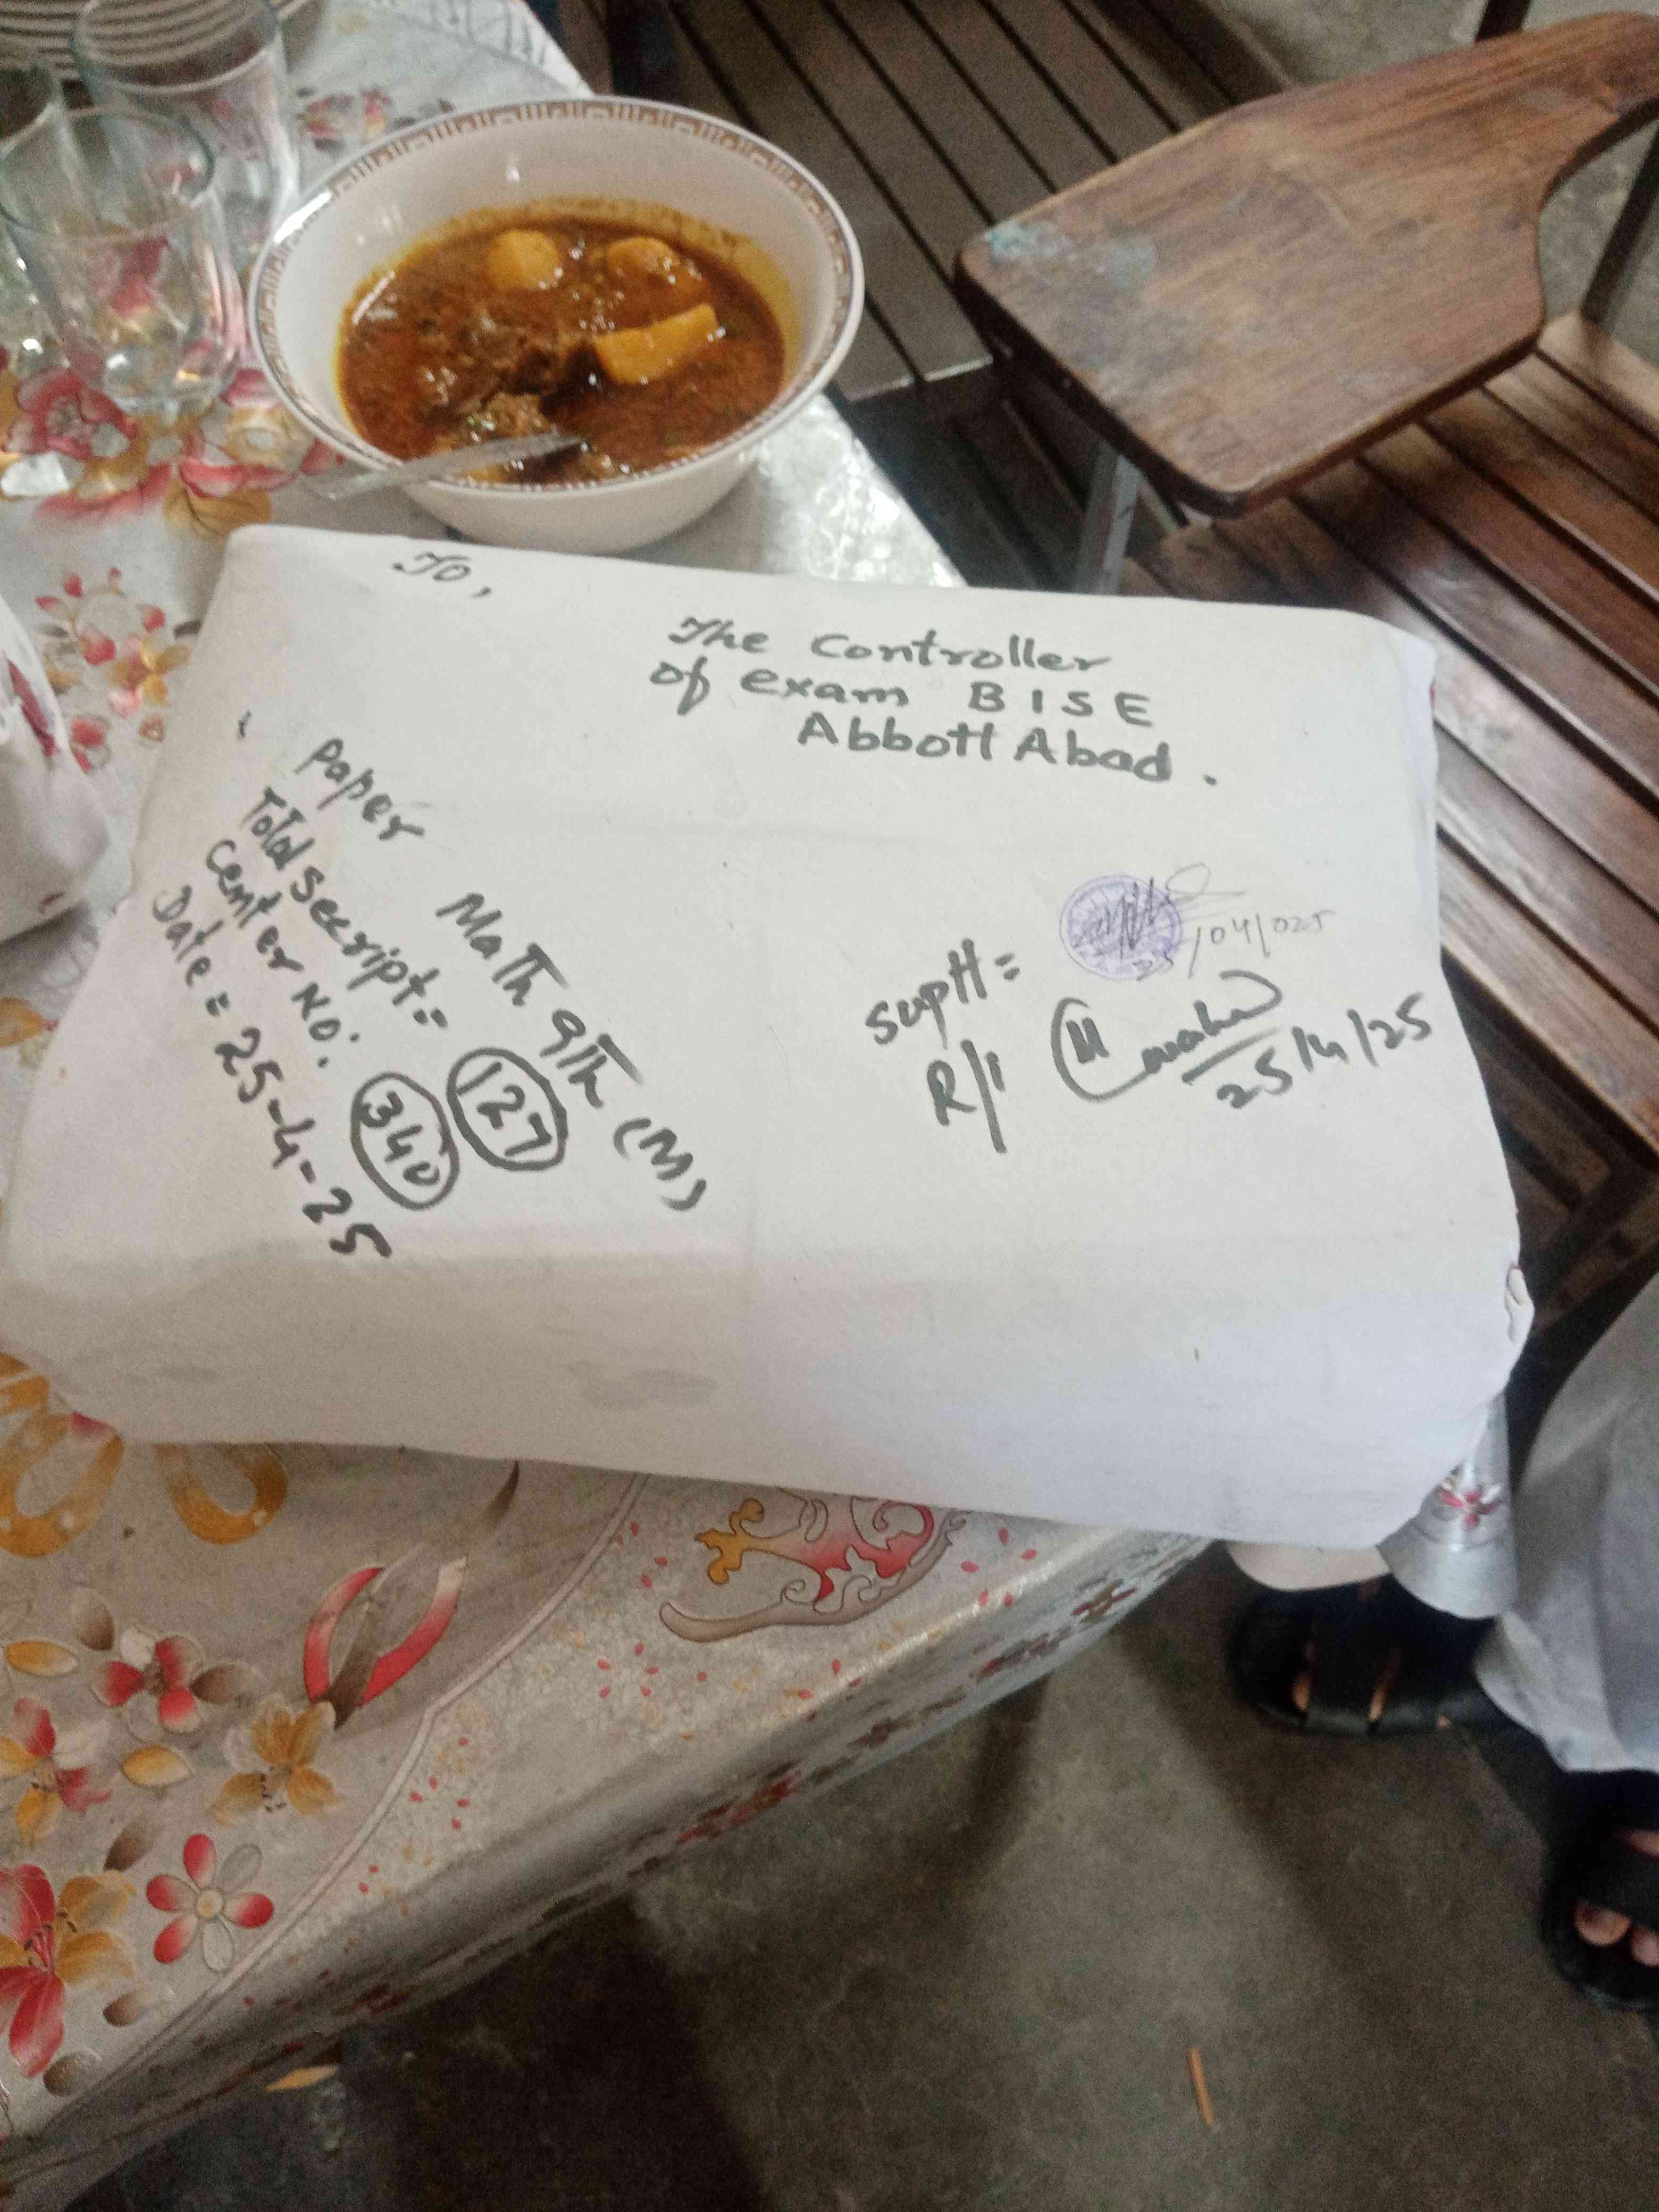 To,
The Controller
of exam BISE
Abbott Abad.
Paper Math 9th (M)
Total Secript= 127
Center No: 340
Date = 25-4-25
Suptt=
25/04/025
R/I
25/4/25